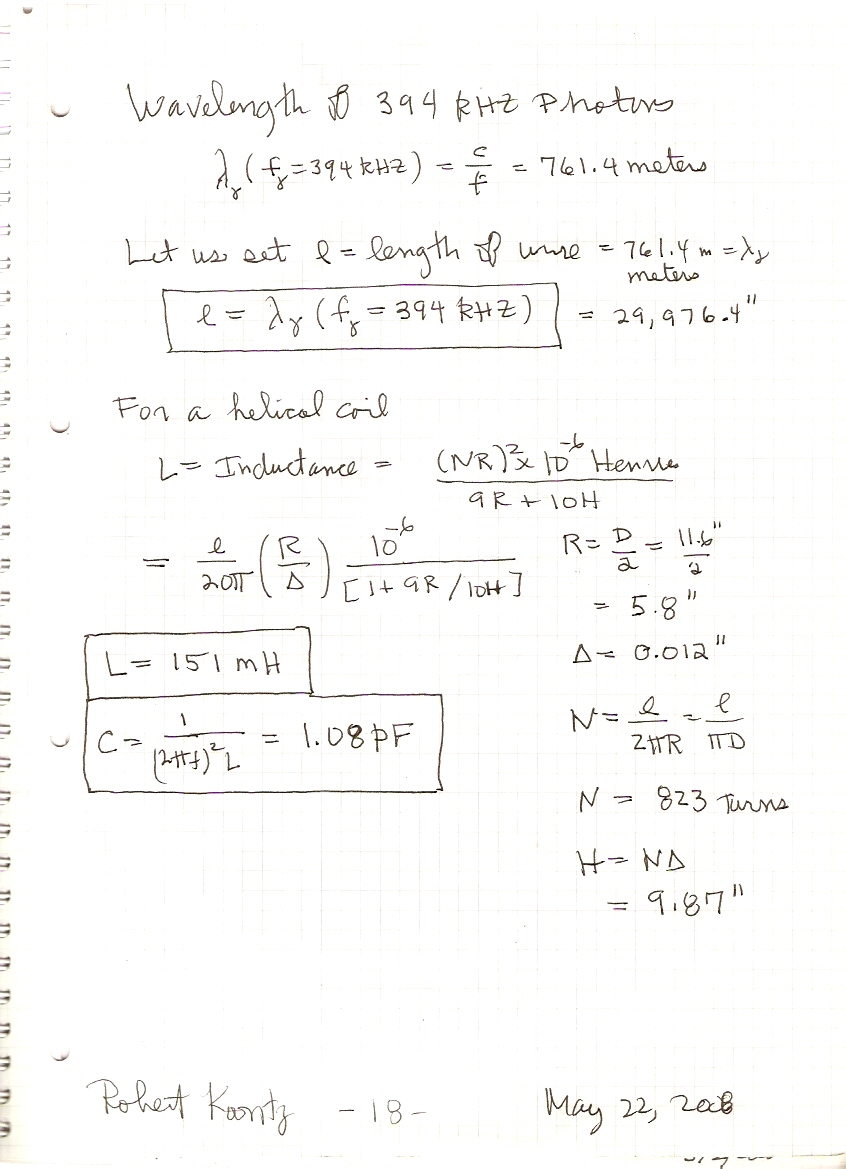 Wavelength of 394 kHz Photons
λγ (fγ = 394 kHz) = c/f = 761.4 meters
Let us set l = length of wire = 761.4 m = λγ
meters
l = λγ (fγ = 394 kHz) = 29,976.4"
For a helical coil
L = Inductance = (NR)² x 10⁻⁶ Henries / 9R + 10H
= l/20π (R/Δ) 10⁻⁶/[1 + 9R/10H] R = D/2 = 11.6"/2
= 5.8"
L = 151 mH Δ = 0.012"
C = 1/(2πf)²L = 1.08 pF N = l/2πR = l/πD
N = 823 Turns
H = NΔ
= 9.87"
Robert Koontz - 18 - May 22, 2008